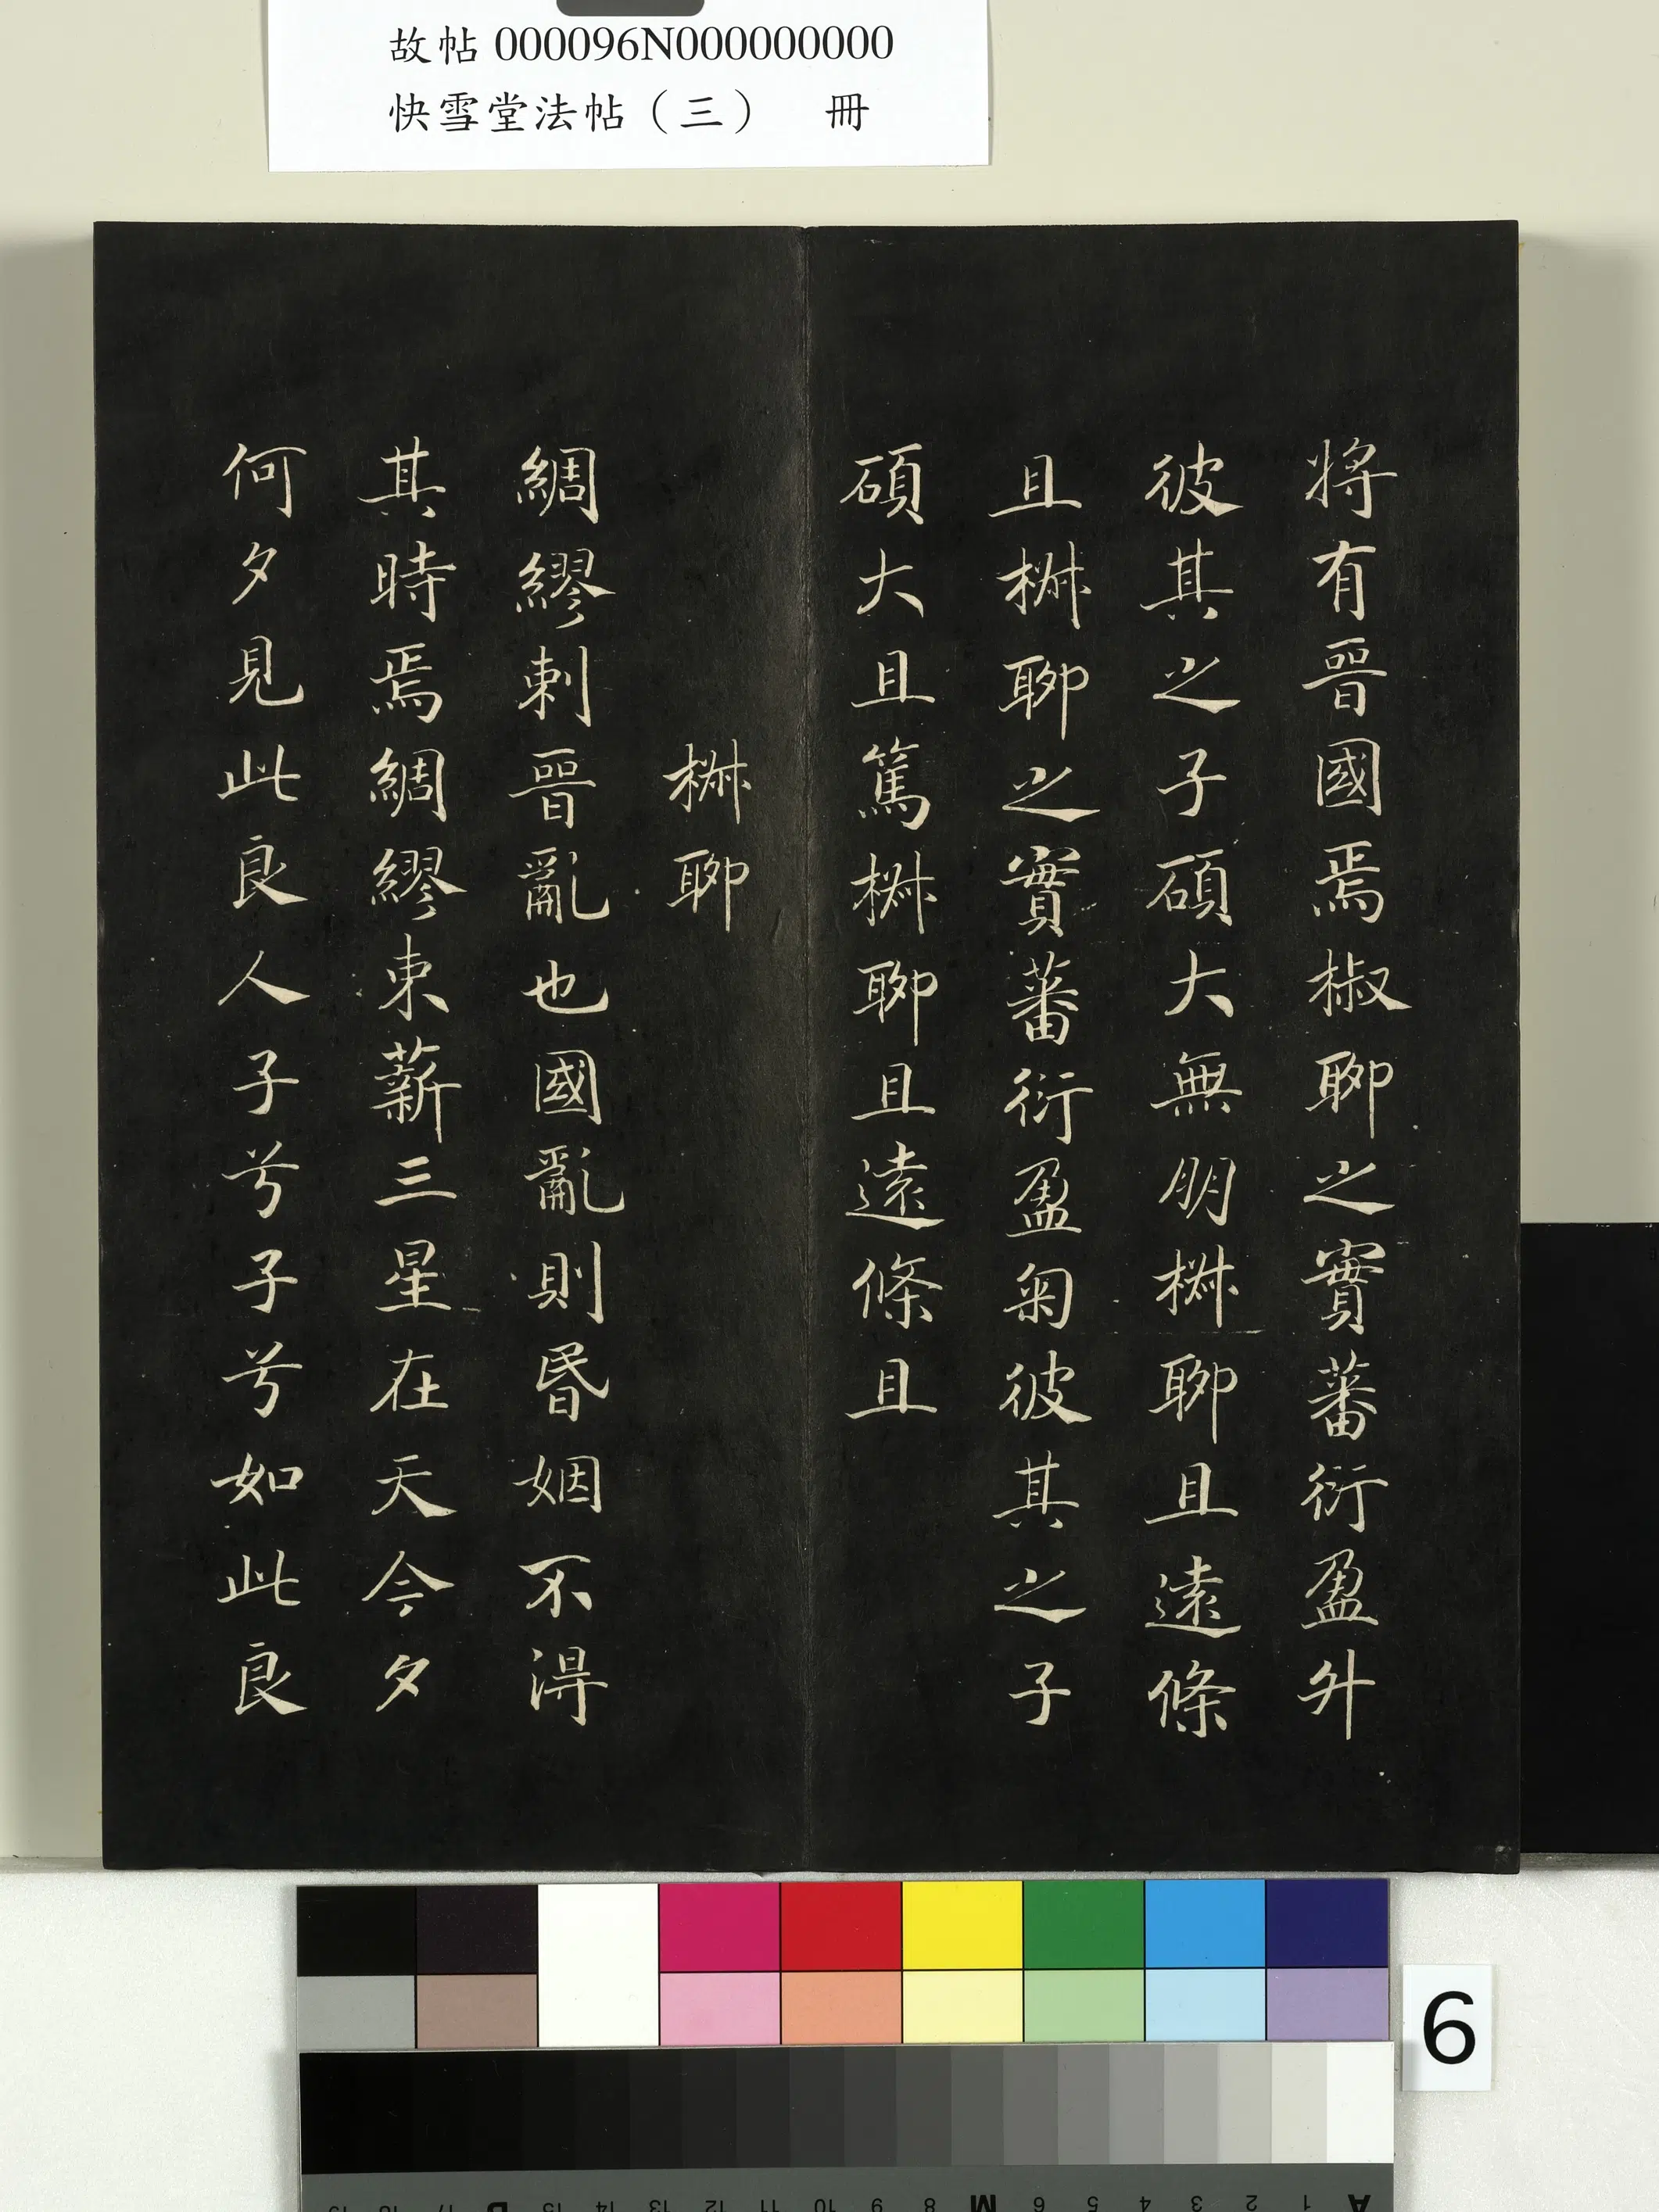 故帖 000096N000000000
快雪堂法帖（三） 冊
將有晉國焉椒聊之實蕃衍盈升
彼其之子碩大無朋椒聊且遠條
且椒聊之實蕃衍盈匊彼其之子
碩大且篤椒聊且遠條且
椒聊
綢繆刺晉亂也國亂則昬姻不得
其時焉綢繆束薪三星在天今夕
何夕見此良人子兮子兮如此良
6
A 1 2 3 4 5 6 M 8 9 10 11 12 13 14 15 B 17 18 19